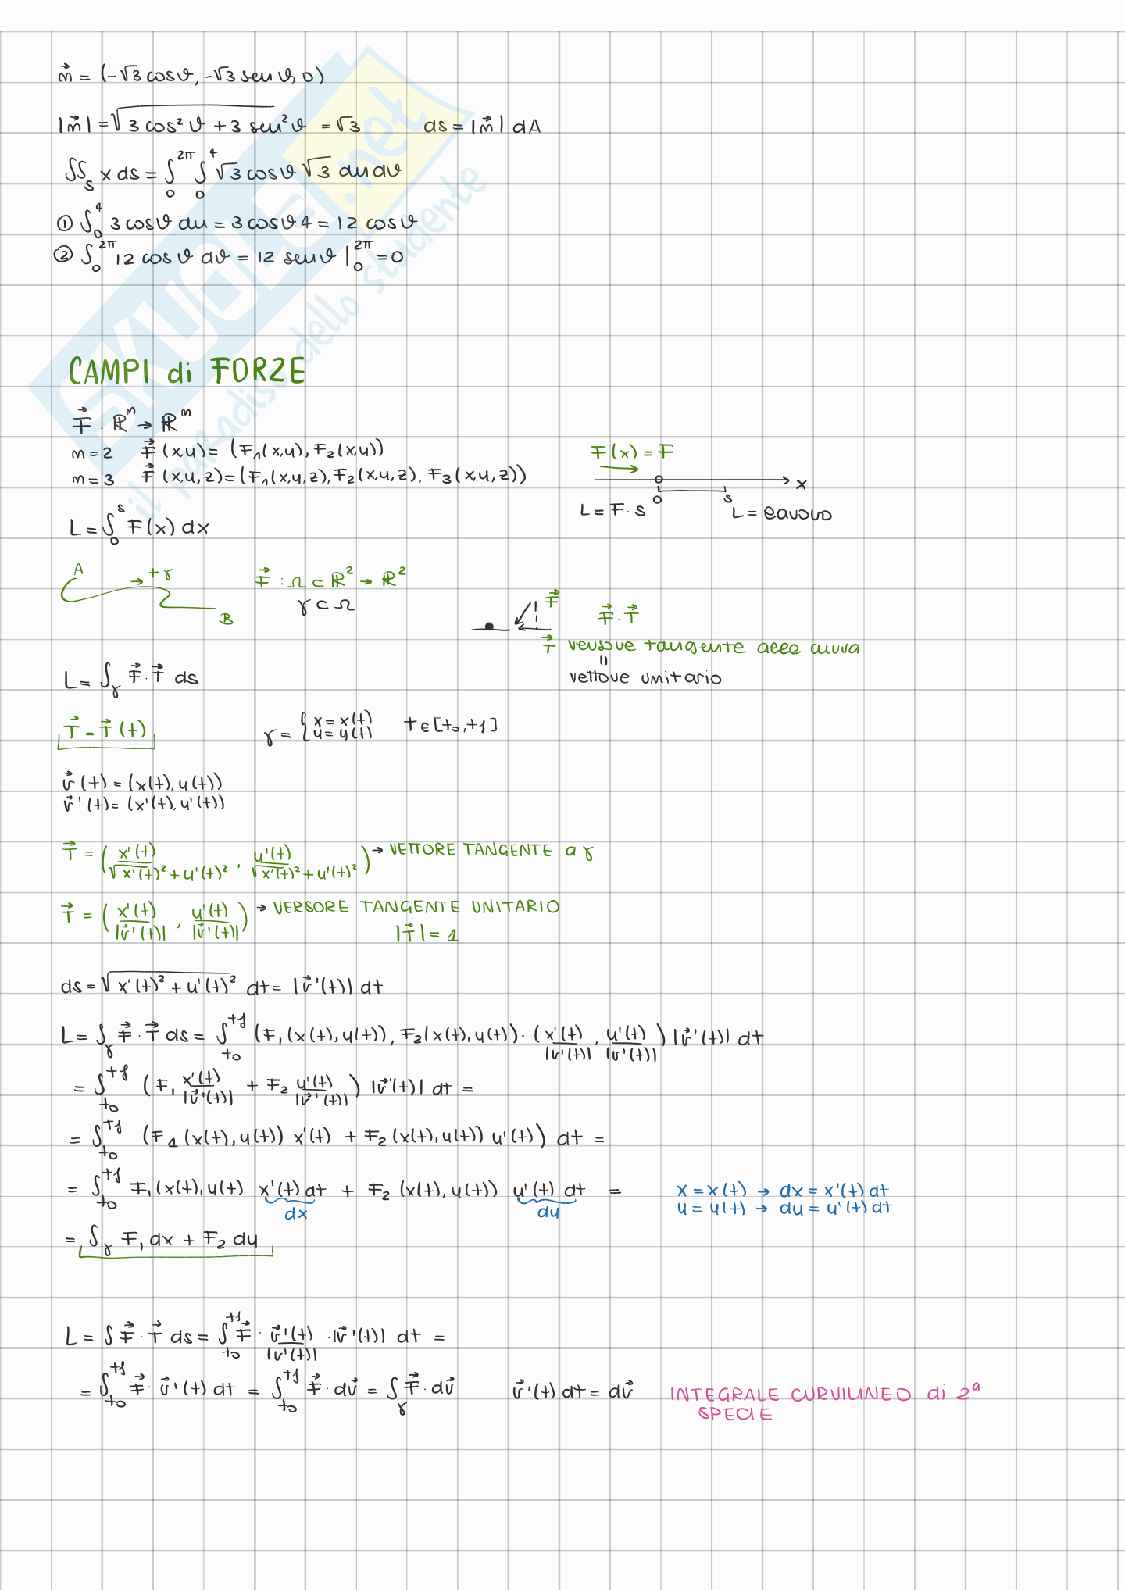 n⃗ = (-√3 cosϑ, -√3 senϑ, 0)
|n⃗| = √(3 cos²ϑ + 3 sen²ϑ) = √3    ds = |n⃗| dA
∬_S x ds = ∫_0^{2π} ∫_0^4 √3 cosϑ √3 du dϑ
① ∫_0^4 3 cosϑ du = 3 cosϑ 4 = 12 cosϑ
② ∫_0^{2π} 12 cosϑ dϑ = 12 senϑ |_0^{2π} = 0
SKUOLA.net
il paradiso dello studente
CAMPI di FORZE
F⃗ : ℝⁿ → ℝⁿ
n = 2    F⃗(x,y) = (F₁(x,y), F₂(x,y))
n = 3    F⃗(x,y,z) = (F₁(x,y,z), F₂(x,y,z), F₃(x,y,z))
F(x) = F
0    s    x
L = F · s    L = lavoro
L = ∫_0^s F(x) dx
A    +γ    B
F⃗ : Ω ⊂ ℝ² → ℝ²
γ ⊂ Ω
F⃗    F⃗ · T⃗
T⃗ versore tangente alla curva
"
vettore unitario
L = ∫_γ F⃗ · T⃗ ds
T⃗ - T⃗(t)    γ = { x = x(t)    t ∈ [t₀, t₁]
y = y(t)
r⃗(t) = (x(t), y(t))
r⃗'(t) = (x'(t), y'(t))
T⃗ = (x'(t)/√(x'(t)² + y'(t)²), y'(t)/√(x'(t)² + y'(t)²)) → VETTORE TANGENTE a γ
T⃗ = (x'(t)/|r⃗'(t)|, y'(t)/|r⃗'(t)|) → VERSORE TANGENTE UNITARIO
|T⃗| = 1
ds = √(x'(t)² + y'(t)²) dt = |r⃗'(t)| dt
L = ∫_γ F⃗ · T⃗ ds = ∫_{t₀}^{t₁} (F₁(x(t), y(t)), F₂(x(t), y(t)) · (x'(t)/|r⃗'(t)|, y'(t)/|r⃗'(t)|) |r⃗'(t)| dt
= ∫_{t₀}^{t₁} (F₁ x'(t)/|r⃗'(t)| + F₂ y'(t)/|r⃗'(t)|) |r⃗'(t)| dt =
= ∫_{t₀}^{t₁} (F₁(x(t), y(t)) x'(t) + F₂(x(t), y(t)) y'(t)) dt =
= ∫_{t₀}^{t₁} F₁(x(t), y(t) x'(t) dt + F₂(x(t), y(t)) y'(t) dt =    x = x(t) → dx = x'(t) dt
dx    dy    y = y(t) → dy = y'(t) dt
= ∫_γ F₁ dx + F₂ dy
L = ∫ F⃗ · T⃗ ds = ∫_{t₀}^{t₁} F⃗ · r⃗'(t)/|r⃗'(t)| · |r⃗'(t)| dt =
= ∫_{t₀}^{t₁} F⃗ · r⃗'(t) dt = ∫_{t₀}^{t₁} F⃗ · dr⃗ = ∫_γ F⃗ · dr⃗    r⃗'(t) dt = dr⃗    INTEGRALE CURVILINEO di 2ª
SPECIE